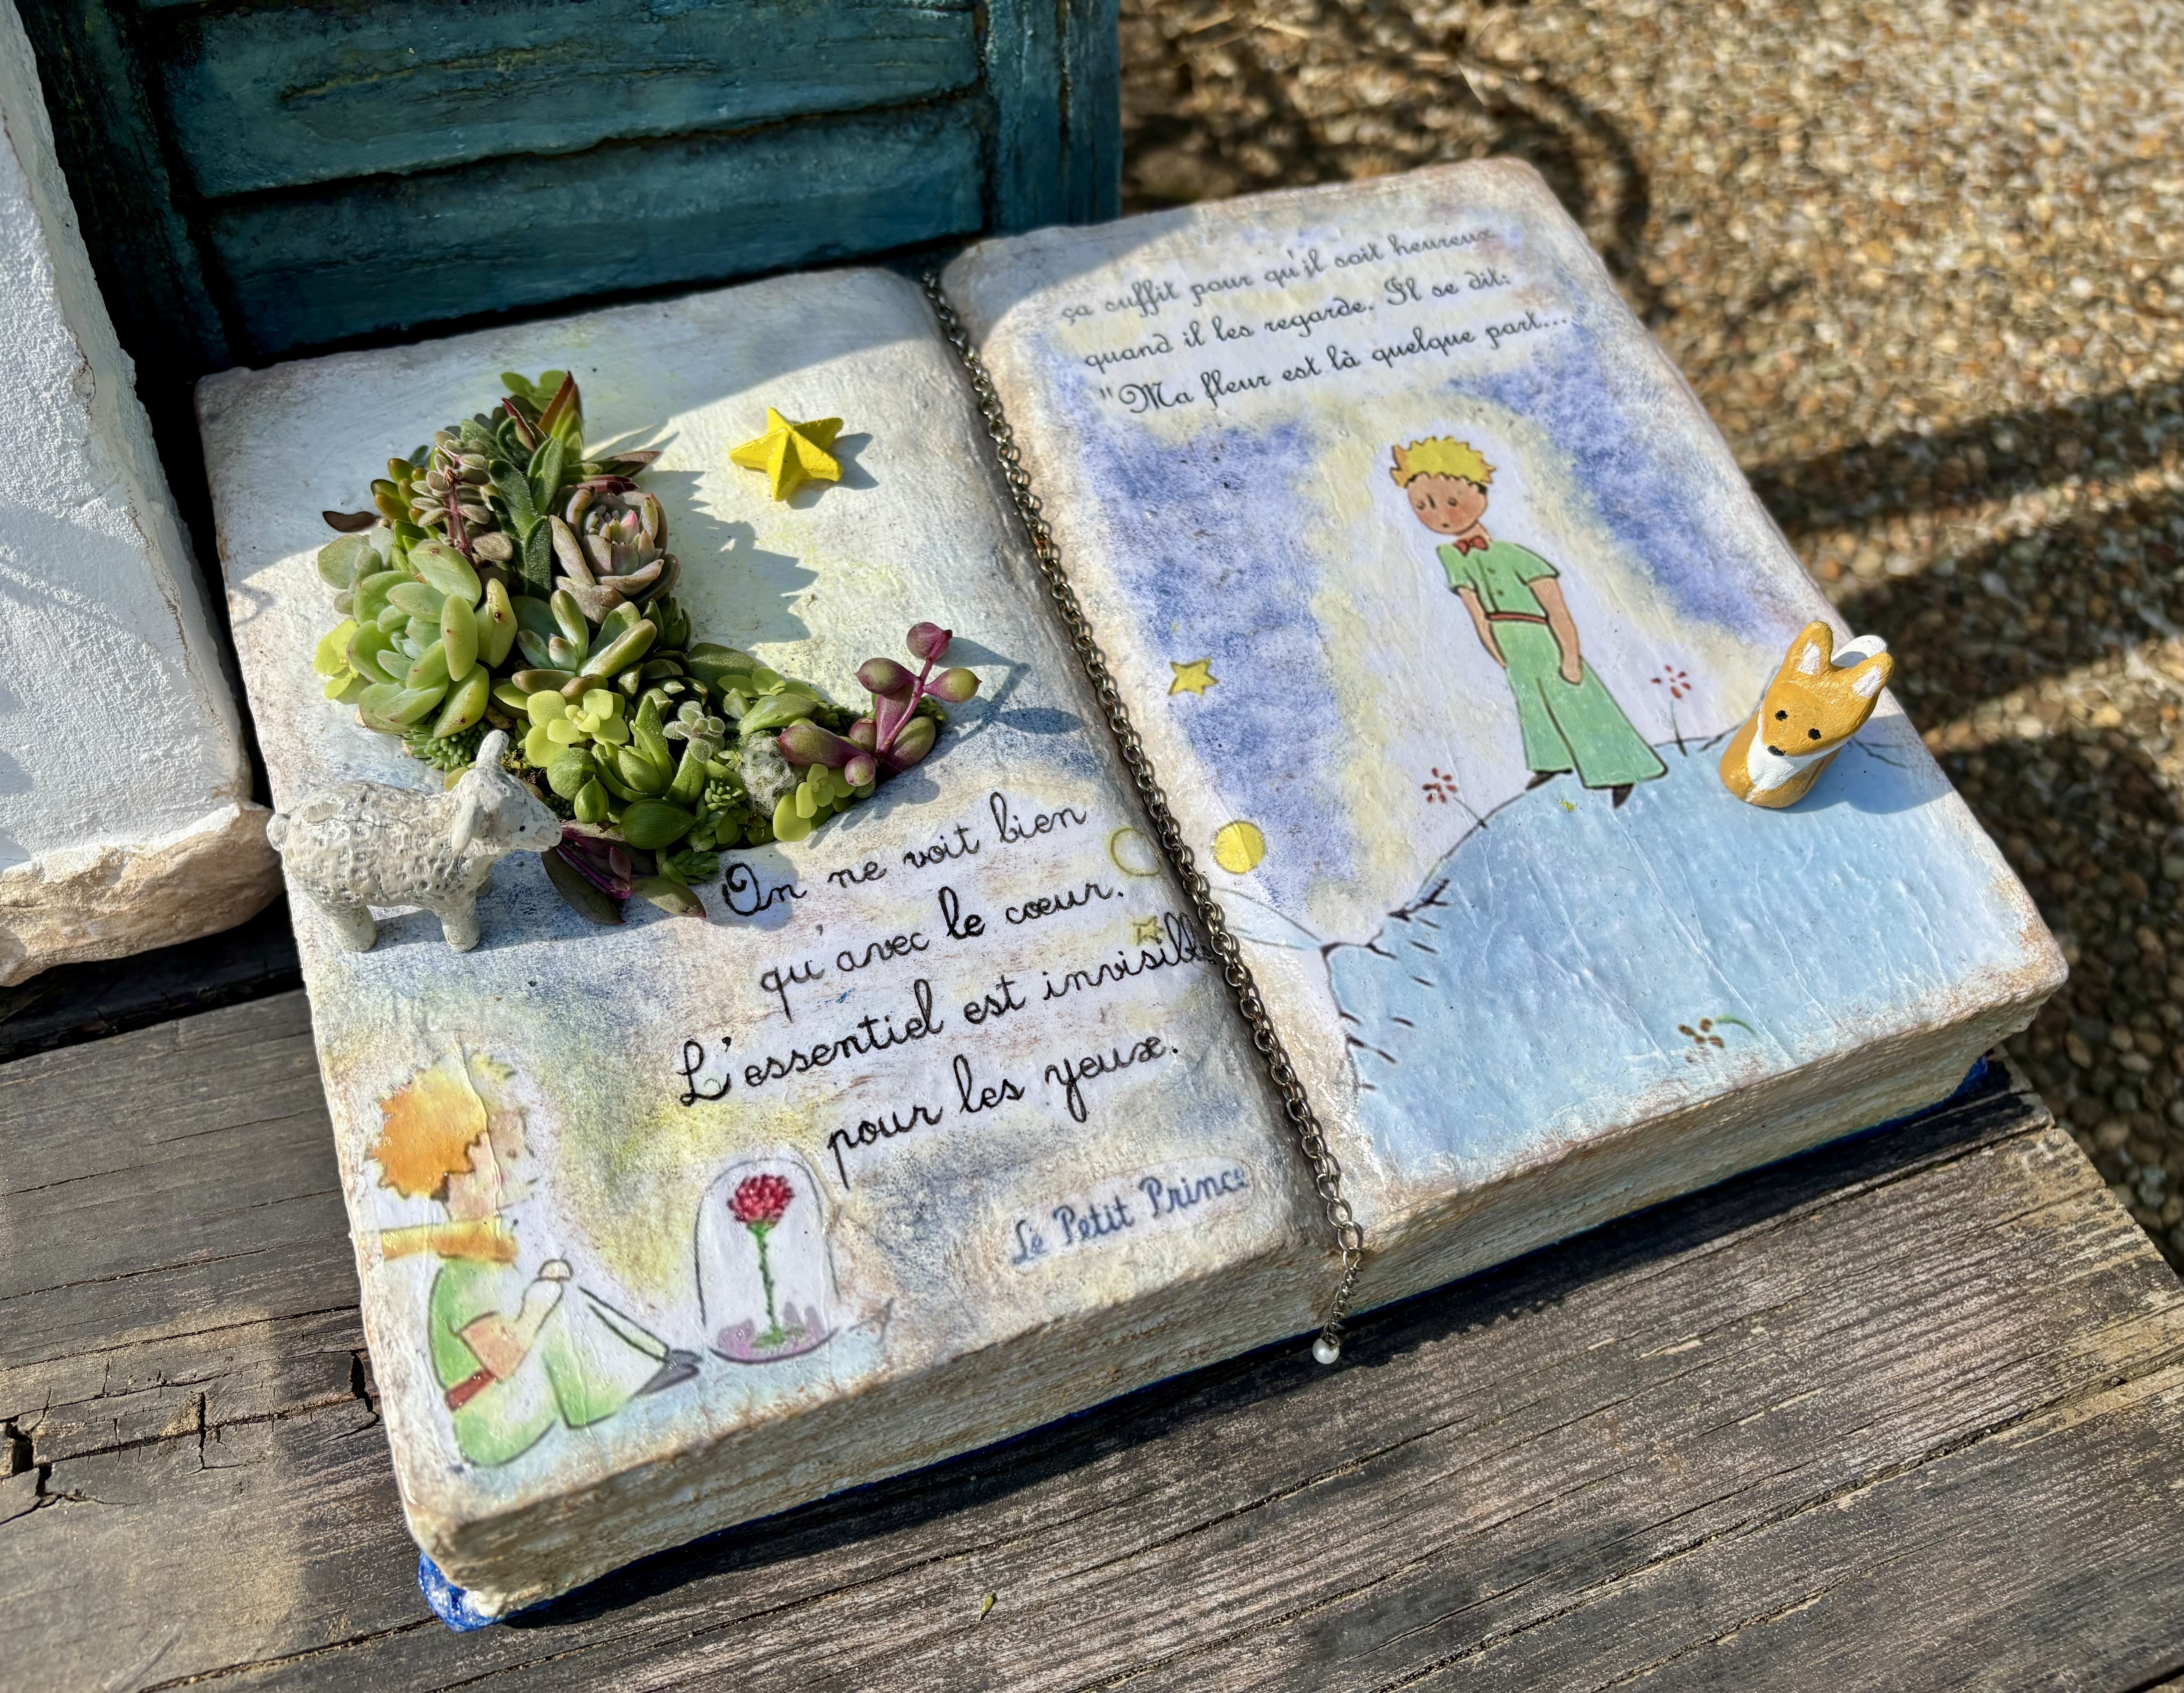 On ne voit bien
qu'avec le cœur.
L'essentiel est invisible
pour les yeux.
Le Petit Prince
ça suffit pour qu'il soit heureux
quand il les regarde. Il se dit:
"Ma fleur est là quelque part...